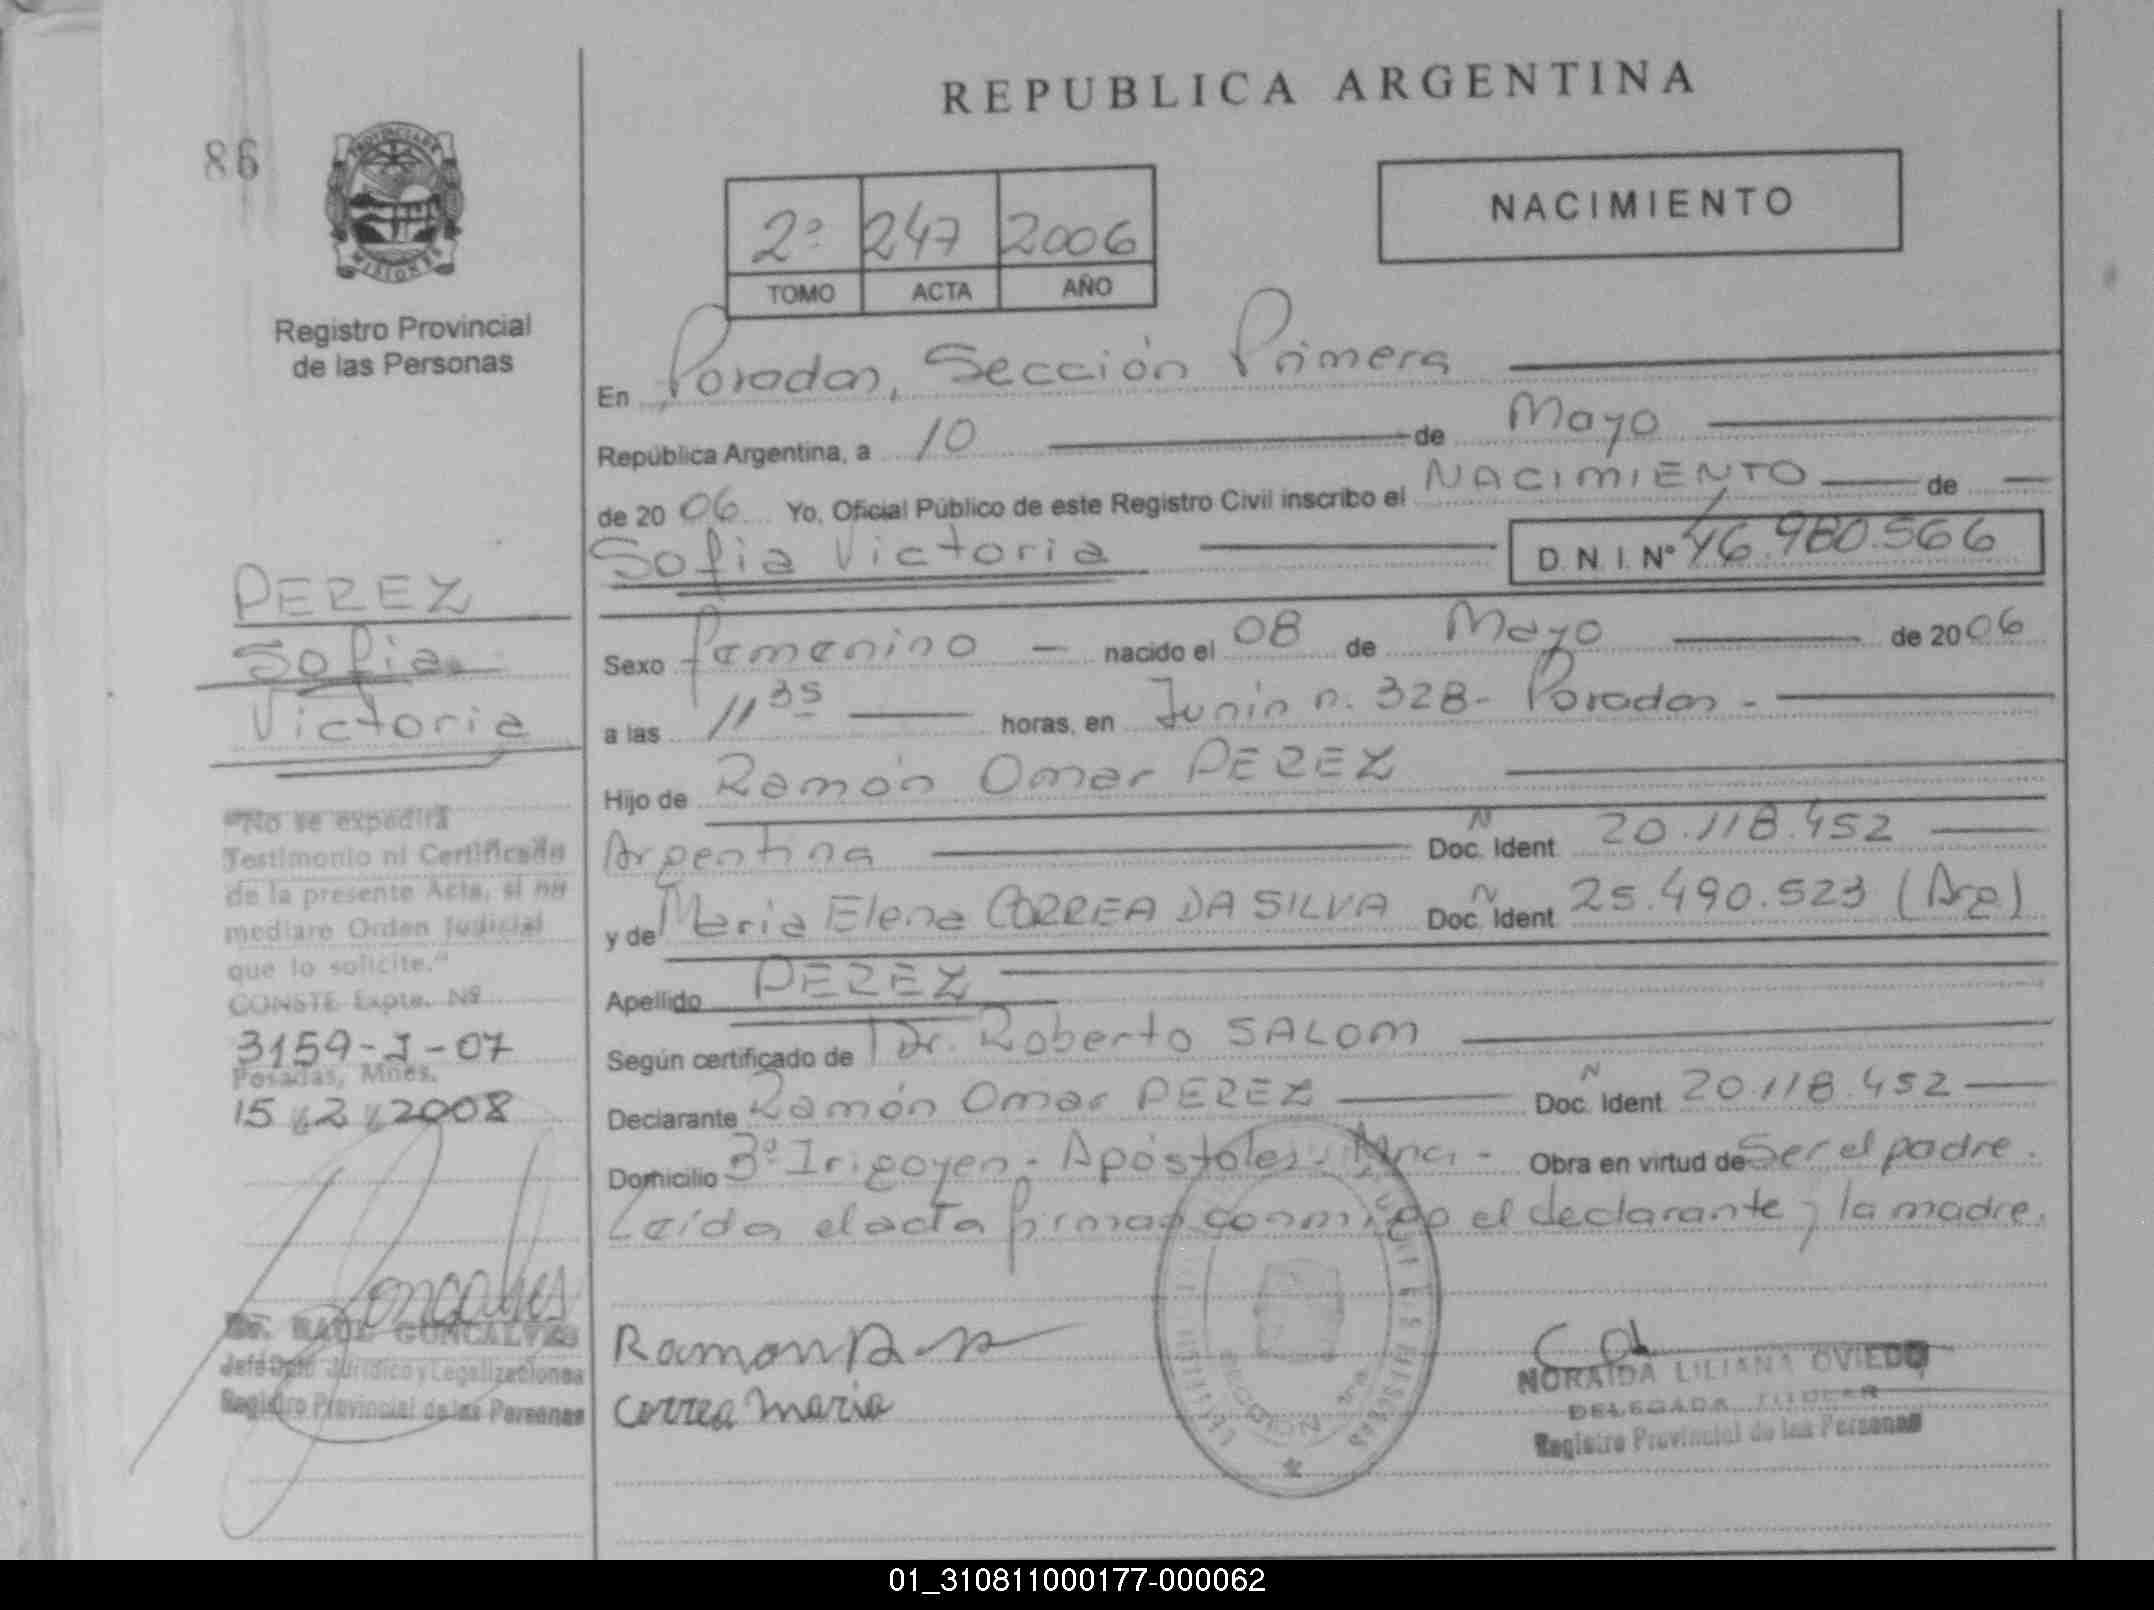 REPUBLICA ARGENTINA
86
PROVINCIA DE
MISIONES
Registro Provincial
de las Personas
2º 247 2006
TOMO ACTA AÑO
NACIMIENTO
En Posadas, Sección Primera
República Argentina, a 10 de Mayo
de 2006 Yo, Oficial Público de este Registro Civil inscribo el NACIMIENTO de
Sofia Victoria D.N.I. Nº 46.980.566
Sexo femenino nacido el 08 de Mayo de 2006
a las 11 35 horas, en Junín n. 328 - Posadas -
Hijo de Ramón Omar PEREZ
Argentina Doc. Ident N 20.118.452
y de Maria Elena CORREA DA SILVA Doc. Ident N 25.490.523 (Arg)
Apellido PEREZ
Según certificado de Dr. Roberto SALOM
Declarante Ramón Omar PEREZ Doc. Ident N 20.118.452
Domicilio 3º Irigoyen - Apóstoles, Mnes - Obra en virtud de Ser el padre.
Leída el acta firman conmigo el declarante y la madre.
Ramon
Correa Maria
NORAIDA LILIANA OVIEDO
DELEGADA TITULAR
Registro Provincial de las Personas
PEREZ
Sofia
Victoria
"No se expedirá
Testimonio ni Certificado
de la presente Acta, si no
mediare Orden Judicial
que lo solicite."
CONSTE Expte. Nº
3159-J-07
Posadas, Mnes.
15 2 2008
Goncalves
Dr. RAUL GONCALVES
Jefe Dpto Jurídico y Legalizaciones
Registro Provincial de las Personas
01_310811000177-000062